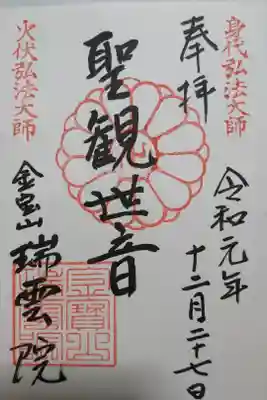 身代弘法大師
奉拝
令和元年
十二月二十七日
聖観世音
火伏弘法大師
金宝山
瑞雲院